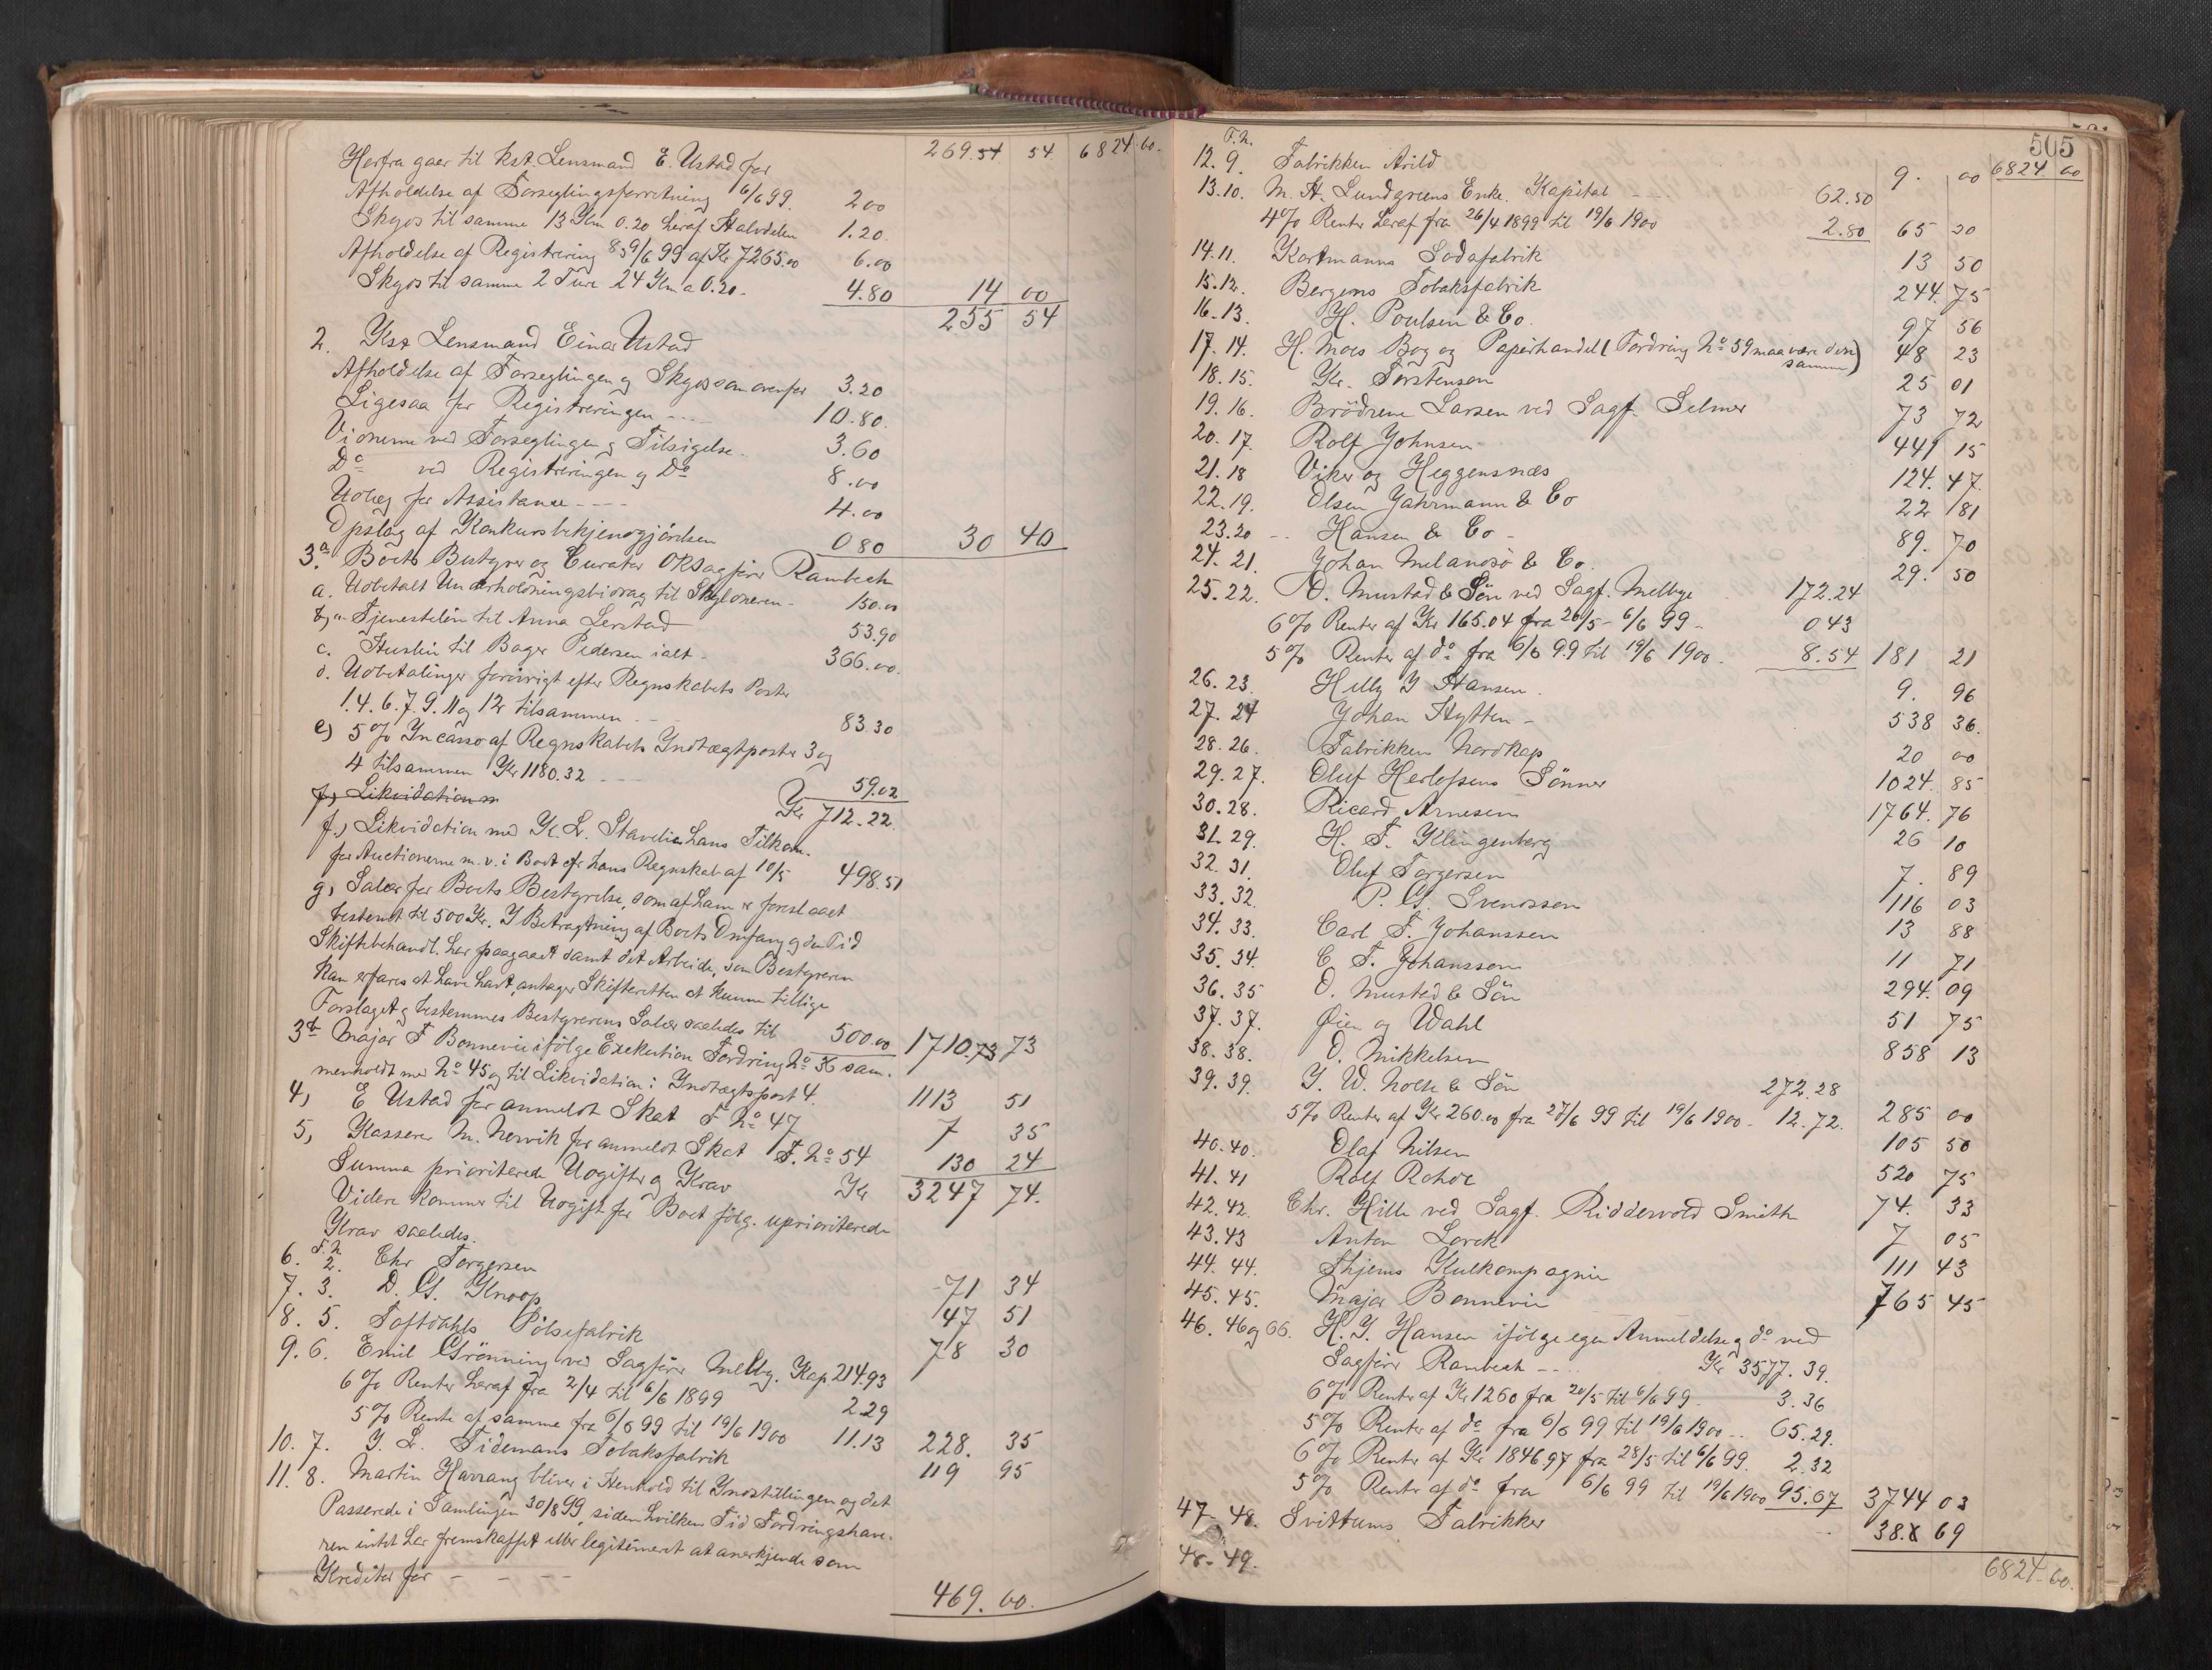 269.54 54 6824.00.
Herfra gaar til kst. Lensmand E. Ustad for
Afholdelse af Forseglingsforretning 6/6 99. 2 00
Skyds til samme 13 Km 0.20 heraf Halvdelen 1.20.
Afholdelse af Registrering 8 & 9/6 99 af Kr 7265.00 6.00
Skyds til samme 2 Ture 24 Km a 0.20. 4.80 14 00
255 54
2. Kst Lensmand Einar Ustad
Afholdelse af Forseglingen og Skyds som ovenfor 3.20
Ligesaa for Registreringen 10.80.
Vidnerne ved Forseglingen og Tilsigelse 3.60
Do ved Registreringen og Do 8.00
Udlæg for Assistance 4.00
Opslag af Konkursbekjendtgjørelsen 0 80 30 40
3a. Boets Bestyrer og Curator ORSagfører Rambech
a. Udbetalt Underholdningsbidrag til Skyldneren 150.00
b. Tjenesteløn til Anna Lerstad 53.90
c. Husleie til Bager Pedersen ialt 366.00.
d. Udbetalinger forøvrigt efter Regnskabets Poster
1.4.6.7.9.11 og 12 tilsammen 83.30
e) 5% Incasso af Regnskabets Indtægtposter 3 og
4 tilsammen Kr 1180.32 59.02
f) Likvidation m Kr 712.22.
f.) Likvidation med K. L. Stavelie hans Tilkom.
for Auctionerne m.v. i Boet efr hans Regnskab af 10/5 498.51
g) Salær for Boets Bestyrelse, som af ham er foreslaaet
bestemt til 500 Kr. I Betragtning af Boets Omfang og den Tid
Skiftebehandl. har paagaaet samt det Arbeide, som Bestyreren
kan erfares at have havt, antager Skifteretten at kunne tillige
Forslaget og bestemmes Bestyrerens Salær saaledes til 500.00 1710.73 73
3b Major F Bonnevie ifølge Exekution Fordring No 36 sam-
menholdt med No 45 og til Likvidation i Indtægtspost 4. 1113 51
4) E Ustad for anmeldt Skat F No 47 7 35
5) Kasserer M. Nervik for anmeldt Skat F. No 54 130 24
Summa prioriterede Udgifter og Krav Kr 3247 74.
Videre kommer til Udgift for Boet følg. uprioriterede
Krav saaledes.
F. N.
6. 2. Chr Torgersen 71 34
7. 3. D. G. Knoop 47 51
8. 5. Toftdahls Pølsefabrik 78 30
9. 6. Emil Grønning ved Sagfører Melbye. Kap 214.93
6% Renter heraf fra 2/4 til 6/6 1899 2.29
5% Rente af samme fra 6/6 99 til 19/6 1900 11.13 228. 35
10. 7. J. L. Tidemans Tobaksfabrik 119 95
11. 8. Martin Harrang bliver i Henhold til Indstillingen og det
Passerede i Samlingen 30/8 99, siden hvilken Tid Fordringshave-
ren intet har fremskaffet eller legitimeret at anerkjende som
Kreditor for 469. 00.
505
F. N. 6824 00
12. 9. Fabrikken Arild 9. 00
13. 10. M. H. Lundgreens Enke. Kapital 62.50
4% Renter heraf fra 26/4 1899 til 19/6 1900 2.80 65 30
14. 11. Kortmanns Sodafabrik 13 50
15. 12. Bergens Tobaksfabrik 244. 75
16. 13. H. Poulsen & Co. 97 56
17. 14. H. Moes Bog og Papirhandel (Fordring No 59 maa være den samme) 48 23
18. 15. Kr. Torstenson 25 01
19. 16. Brødrene Larsen ved Sagf. Selmer 73 72
20. 17. Rolf Johnsen 441 15
21. 18 Viker og Heggensnæs 124. 47.
22. 19. Olsen Gahrmann & Co 22 81
23. 20 Hansen & Co 89. 70
24. 21. Johan Melandsø & Co. 29. 50
25. 22. O. Mustad & Søn ved Sagf. Melbye 172.24
6% Renter af Kr 165.04 fra 20/5 - 6/6 99 0 43
5% Renter af do fra 6/6 99 til 19/6 1900. 8.54 181 21
26. 23. Helly J Hansen. 9. 96
27. 24 Johan Hytten 538 36.
28. 26. Fabrikken Nordkap 20 00
29. 27. Oluf Herlofsens Sønner 1024. 85
30. 28. Ricard Arnesen 1764. 76
31. 29. H. F. Klingenberg 26 10
32. 31. Oluf Torgersen 7. 89
33. 32. P. G. Svendssen 116 03
34. 33. Carl F. Johanssen 13 88
35. 34. C F. Johanssen 11 71
36. 35 O. Mustad & Søn 294. 09
37. 37. Øien og Wahl 51 75
38. 38. O. Mikkelsen 858 13
39. 39. J. W. Holth & Søn 272.28
5% Renter af Kr 260.00 fra 27/6 99 til 19/6 1900 12.72. 285 00
40. 40. Olaf Nilsen 105 50
41. 41 Rolf Rohde 520 75
42. 42. Chr. Hille ved Sagf. Riddervold Smith 74. 33
43. 43 Anton Lorck 7 05
44. 44. Thjems Kulkompagnie 111 43
45. 45. Major Bonnevie 765 45
46. 46 og 66. H. J. Hansen ifølge egen Anmeldelse og do ved
Sagfører Rambech Kr 3577.39.
6% Renter af Kr 1260 fra 20/5 til 6/6 99 3.36
5% Renter af do fra 6/6 99 til 19/6 1900 65.29.
6% Renter af Kr 1846.97 fra 28/5 til 6/6 99. 2.32
5% Renter af do fra 6/6 99 til 19/6 1900 95.67 3744 03
47. 48. Svithuns Fabrikker 38.8 69
48. 49.
6824.00.